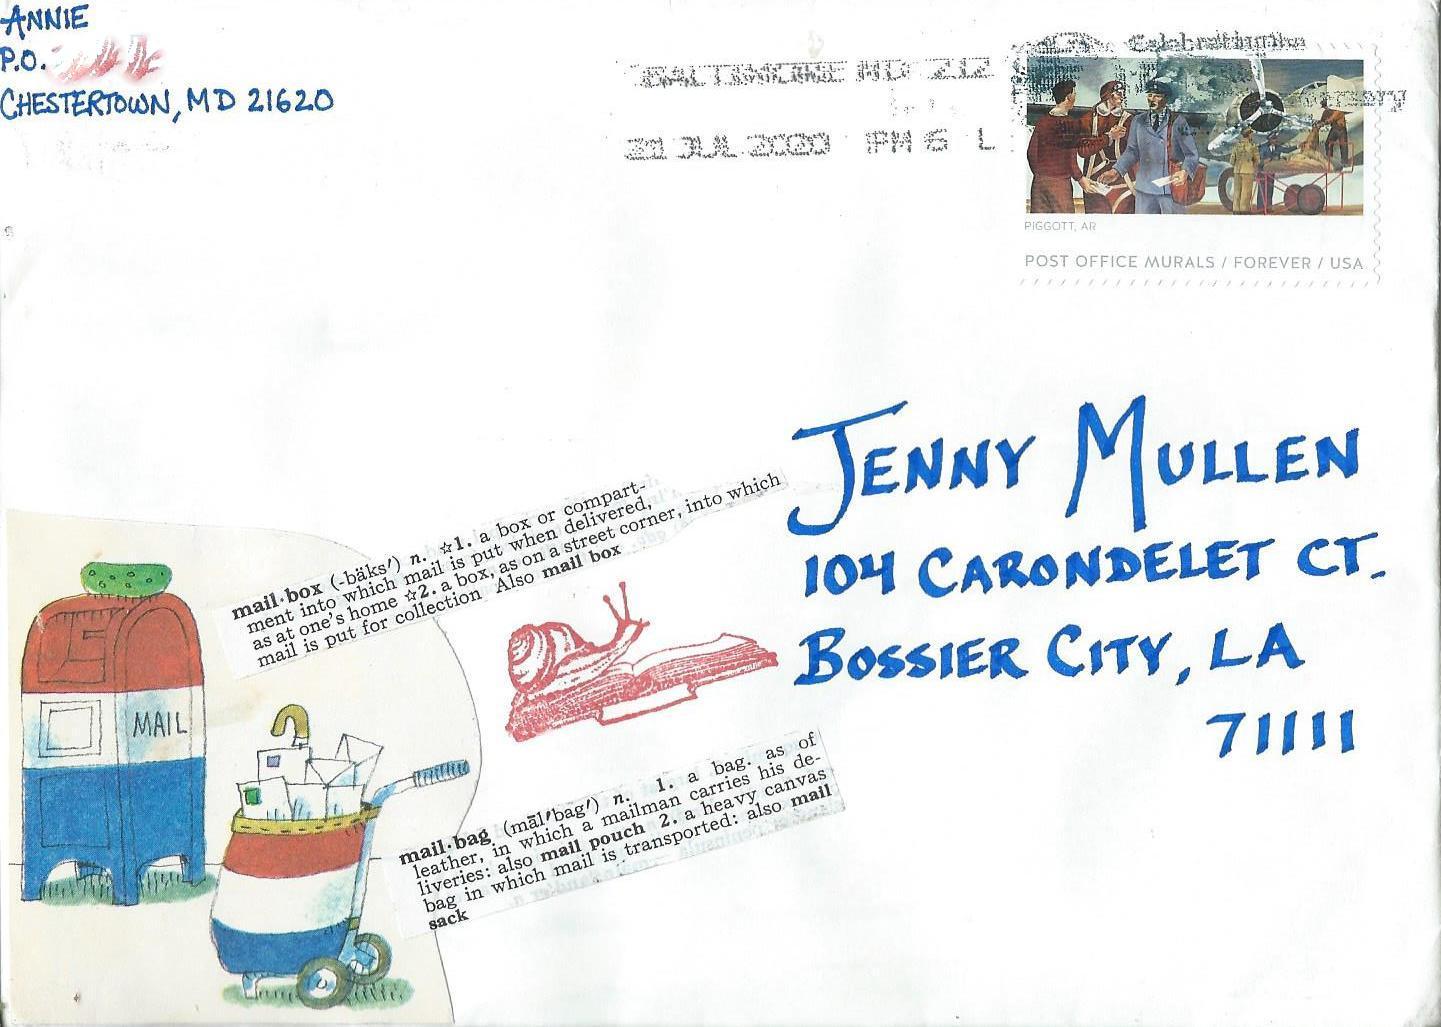 ANNIE
P.O.
CHESTERTOWN, MD 21620
BALTIMORE MD 212
31 JUL 2020 PM 6 L
Celebrating the
PIGGOTT, AR
POST OFFICE MURALS / FOREVER / USA
JENNY MULLEN
104 CARONDELET CT.
BOSSIER CITY, LA
71111
mail·box (-bäks′) n. ☆1. a box or compart-
ment into which mail is put when delivered,
as at one's home ☆2. a box, as on a street corner, into which
mail is put for collection Also mail box
MAIL
mail·bag (māl′bag′) n. 1. a bag. as of
leather, in which a mailman carries his de-
liveries: also mail pouch 2. a heavy canvas
bag in which mail is transported: also mail
sack